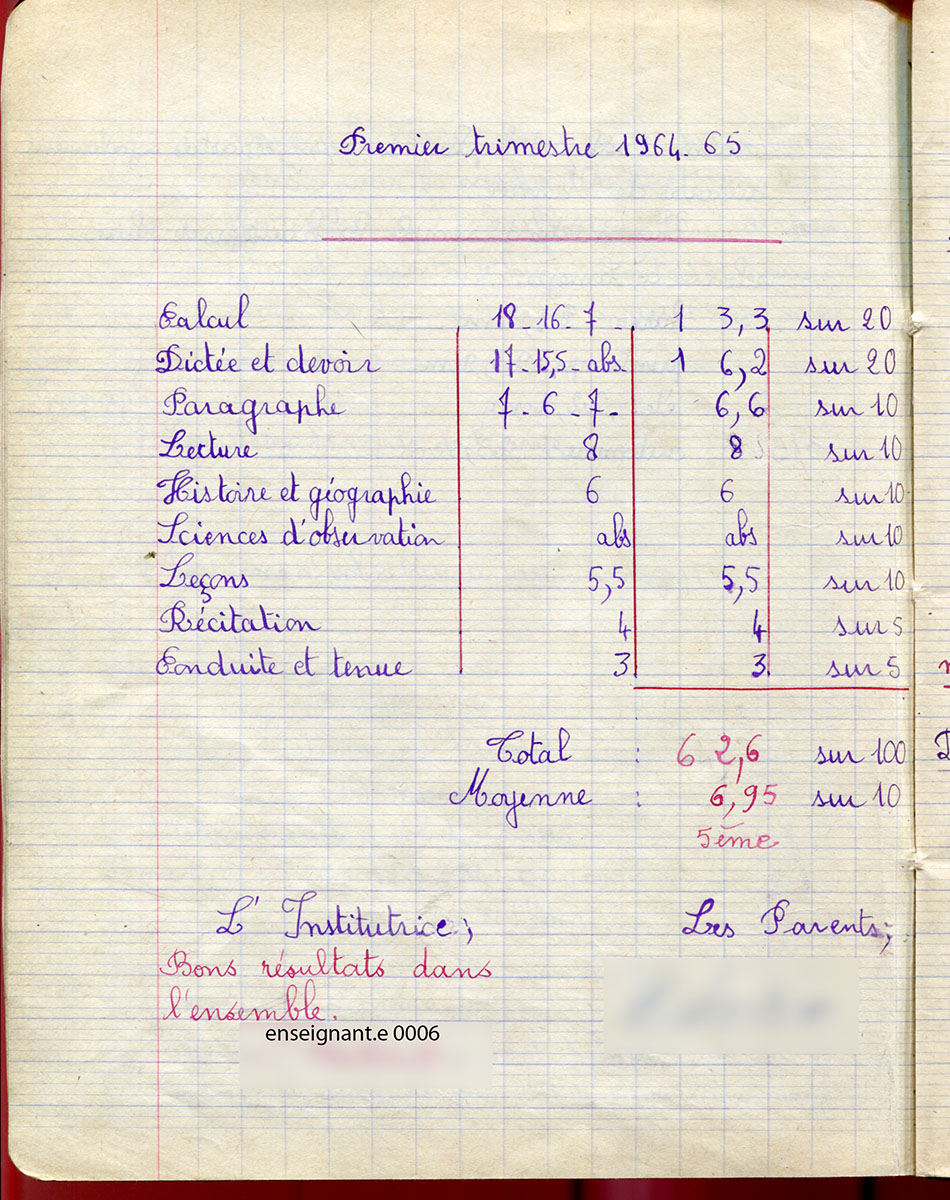 Premier trimestre 1964-65
Calcul 18-16-7- 13,3 sur 20
Dictée et devoir 17-15,5-abs 16,2 sur 20
Paragraphe 7-6-7- 6,6 sur 10
Lecture 8 8 sur 10
Histoire et géographie 6 6 sur 10
Sciences d'observation abs abs sur 10
Leçons 5,5 5,5 sur 10
Récitation 4 4 sur 5
Conduite et tenue 3 3 sur 5
Total : 62,6 sur 100
Moyenne : 6,95 sur 10
5ème
L'Institutrice, Les Parents,
Bons résultats dans
l'ensemble.
enseignant.e 0006